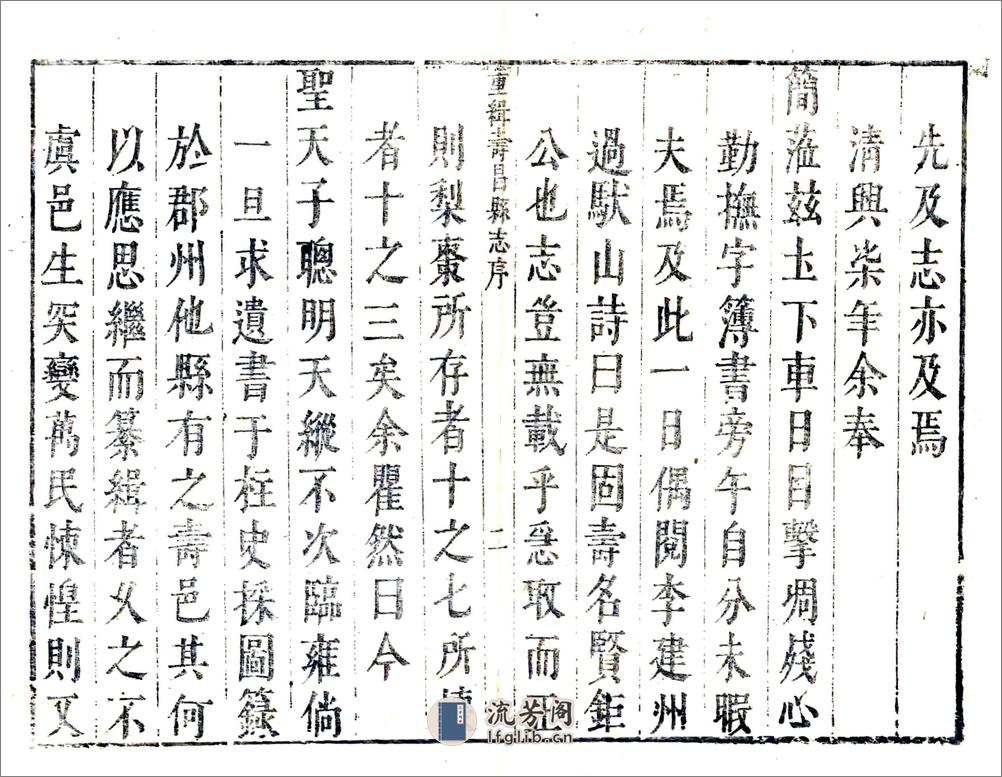 先及志亦及焉
清興柒年余奉
簡蒞茲土下車日目擊凋殘心
勤撫字簿書旁午自分未暇
夫焉及此一日偶閱李建州
過馱山詩曰是固壽名賢鉅
公也志豈無載乎亟取而
重緝壽昌縣志序
二
則梨棗所存者十之七所
者十之三矣余瞿然曰今
聖天子聰明天縱不次臨雍倘
一旦求遺書于柱史採圖籙
於郡州他縣有之壽邑其何
以應思繼而纂緝者久之不
虞邑生突變萬民悚惶則又
流芳阁
lfglib.cn